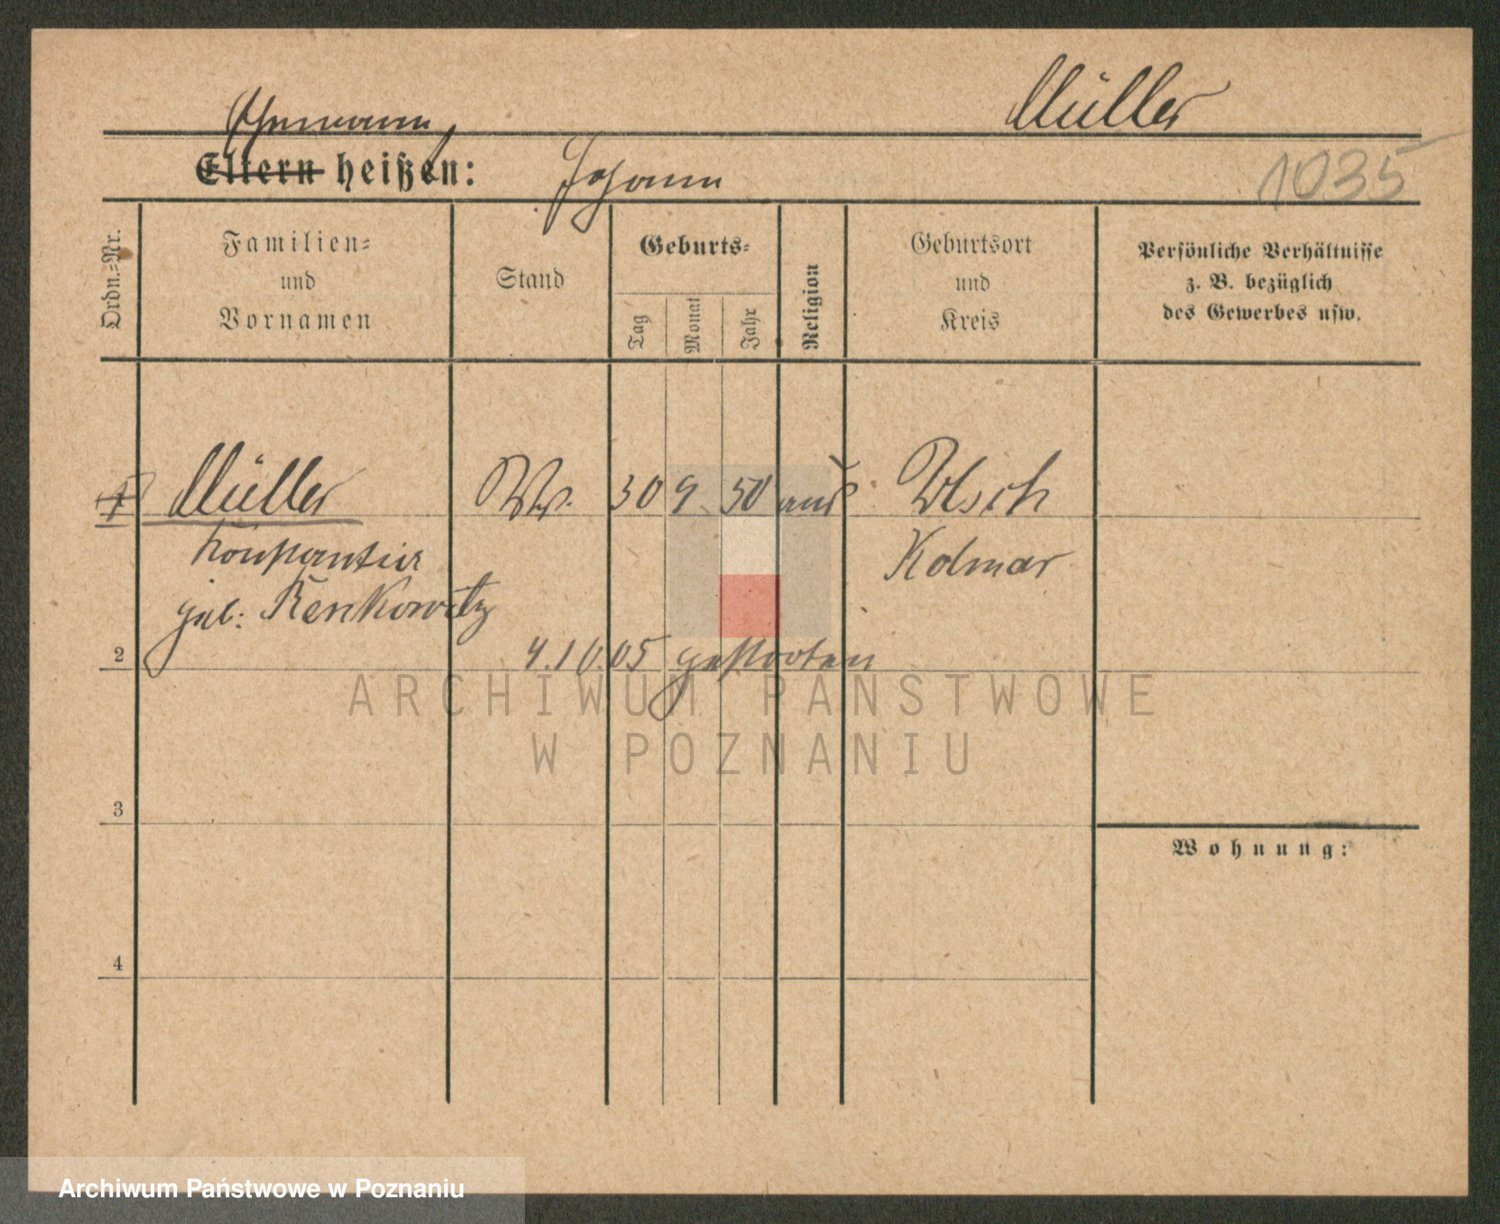 Müller
Ehemann
Eltern heißen: Johann
1035
Ordn.-Nr.
Familien-
und
Vornamen
Stand
Geburts-
Tag
Monat
Jahr
Religion
Geburtsort
und
Kreis
Persönliche Verhältnisse
z. B. bezüglich
des Gewerbes usw.
1 Müller Ww. 30 9 50
Konstantia Kolmar
geb: Renkowitz
2 4.10.05 gestorben
ARCHIWUM PAŃSTWOWE
W POZNANIU
3
Wohnung:
4
Archiwum Państwowe w Poznaniu